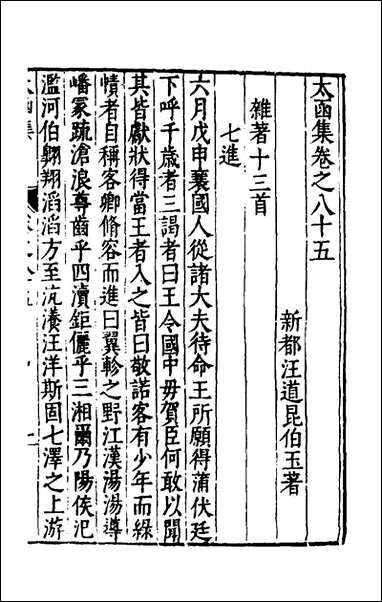 太函集卷之八十五
新都汪道昆伯玉著
雜著十三首
七進
六月戊申襄國人從諸大夫待命王所願得蒲伏廷
下呼千歲者三謁者曰王令國中毋賀臣何敢以聞
其皆獻狀得當王者入之皆曰敬諾客有少年而綠
幘者自稱客卿脩容而進曰翼軫之野江漢湯湯導
嶓冢䟽滄浪尊齒乎四瀆鉅儷乎三湘爾乃陽侯汜
濫河伯翺翔滔滔方至沆瀁汪洋斯固七澤之上游
太函集